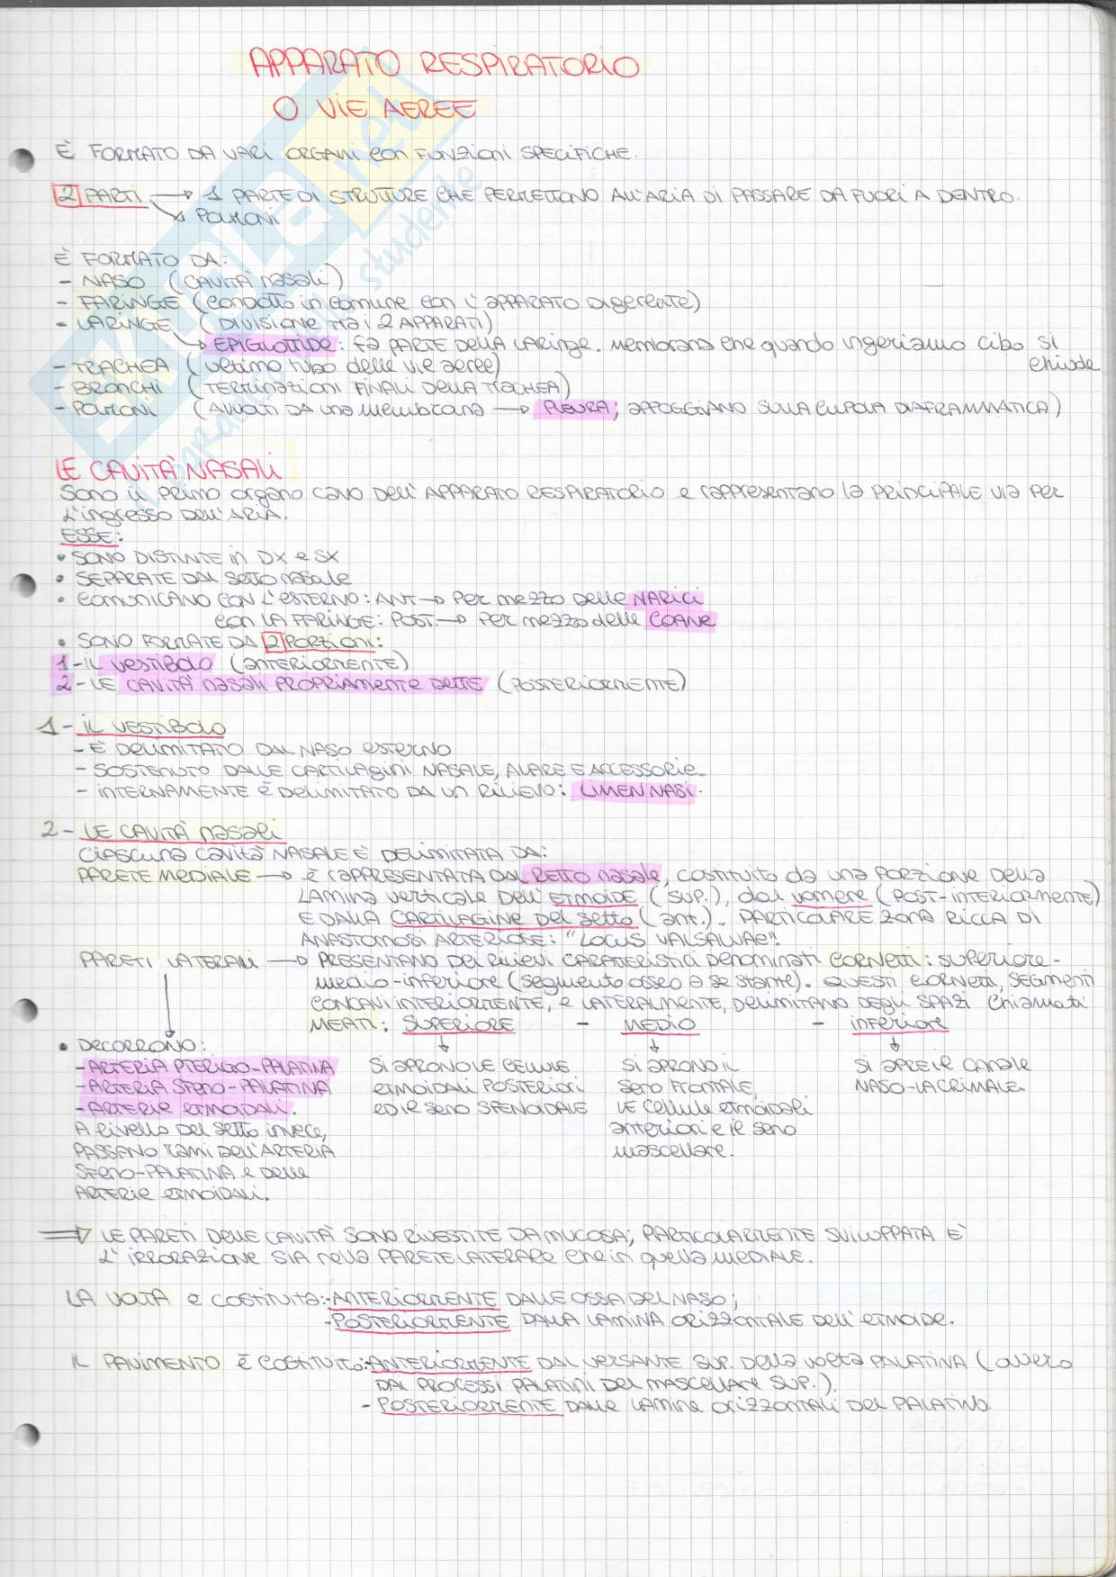 APPARATO RESPIRATORIO
O VIE AEREE
È FORMATO DA VARI ORGANI CON FUNZIONI SPECIFICHE.
2 PARTI → 1 PARTE DI STRUTTURE CHE PERMETTONO ALL'ARIA DI PASSARE DA FUORI A DENTRO.
↘ POLMONI
È FORMATO DA:
- NASO (CAVITÀ NASALI)
- FARINGE (CONDOTTO IN COMUNE CON L'APPARATO DIGERENTE)
- LARINGE (DIVISIONE TRA I 2 APPARATI)
↳ EPIGLOTTIDE: FA PARTE DELLA LARINGE. MEMBRANA CHE QUANDO INGERIAMO CIBO SI
CHIUDE
- TRACHEA (ULTIMO TUBO DELLE VIE AEREE)
- BRONCHI (TERMINAZIONI FINALI DELLA TRACHEA)
- POLMONI (AVVOLTI DA UNA MEMBRANA → PLEURA; APPOGGIANO SULLA CUPOLA DIAFRAMMATICA)
LE CAVITÀ NASALI
SONO IL PRIMO ORGANO CAVO DELL'APPARATO RESPIRATORIO E RAPPRESENTANO LA PRINCIPALE VIA PER
L'INGRESSO DELL'ARIA.
ESSE:
• SONO DISTINTE IN DX E SX
• SEPARATE DAL SETTO NASALE
• COMUNICANO CON L'ESTERNO: ANT → PER MEZZO DELLE NARICI
CON LA FARINGE: POST → PER MEZZO DELLE COANE
• SONO FORMATE DA 2 PORZIONI:
1 - IL VESTIBOLO (ANTERIORMENTE)
2 - LE CAVITÀ NASALI PROPRIAMENTE DETTE (POSTERIORMENTE)
1 - IL VESTIBOLO
- È DELIMITATO DAL NASO ESTERNO
- SOSTENUTO DALLE CARTILAGINI NASALE, ALARE E ACCESSORIE.
- INTERNAMENTE È DELIMITATO DA UN RILIEVO: LIMEN NASI.
2 - LE CAVITÀ NASALI
CIASCUNA CAVITÀ NASALE È DELIMITATA DA:
PARETE MEDIALE → È RAPPRESENTATA DAL SETTO NASALE, COSTITUITO DA UNA PORZIONE DELLA
LAMINA VERTICALE DELL'ETMOIDE (SUP.), DAL VOMERE (POST-INTERIORMENTE)
E DALLA CARTILAGINE DEL SETTO (ANT.). PARTICOLARE ZONA RICCA DI
ANASTOMOSI ARTERIOSE: "LOCUS VALSALVAE".
PARETI LATERALI → PRESENTANO DEI RILIEVI CARATTERISTICI DENOMINATI CORNETTI: SUPERIORE -
MEDIO - INFERIORE (SEGMENTO OSSEO A SE STANTE). QUESTI CORNETTI, SEGMENTI
CONCAVI INTERIORMENTE, E LATERALMENTE, DELIMITANO DEGLI SPAZI CHIAMATI
MEATI: SUPERIORE - MEDIO - INFERIORE
• DECORRONO:
- ARTERIA PTERIGO-PALATINA
- ARTERIA SFENO-PALATINA
- ARTERIE ETMOIDALI.
A LIVELLO DEL SETTO INVECE,
PASSANO RAMI DELL'ARTERIA
SFENO-PALATINA E DELLE
ARTERIE ETMOIDALI.
SI APRONO LE CELLULE
ETMOIDALI POSTERIORI
ED IL SENO SFENOIDALE
SI APRONO IL
SENO FRONTALE,
LE CELLULE ETMOIDALI
ANTERIORI E IL SENO
MASCELLARE.
SI APRE IL CANALE
NASO-LACRIMALE.
⇒ LE PARETI DELLE CAVITÀ SONO RIVESTITE DA MUCOSA; PARTICOLARMENTE SVILUPPATA È
L'IRRORAZIONE SIA NELLA PARETE LATERALE CHE IN QUELLA MEDIALE.
LA VOLTA È COSTITUITA: - ANTERIORMENTE DALLE OSSA DEL NASO;
- POSTERIORMENTE DALLA LAMINA ORIZZONTALE DELL'ETMOIDE.
IL PAVIMENTO È COSTITUITO: - ANTERIORMENTE DAL VERSANTE SUP. DELLA VOLTA PALATINA (OVVERO
DAI PROCESSI PALATINI DEL MASCELLARE SUP.).
- POSTERIORMENTE DALLE LAMINE ORIZZONTALI DEL PALATINO